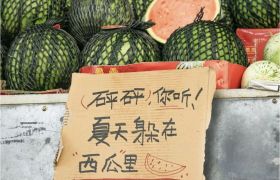 (砰砰,你听!)
夏天躲在
西瓜里